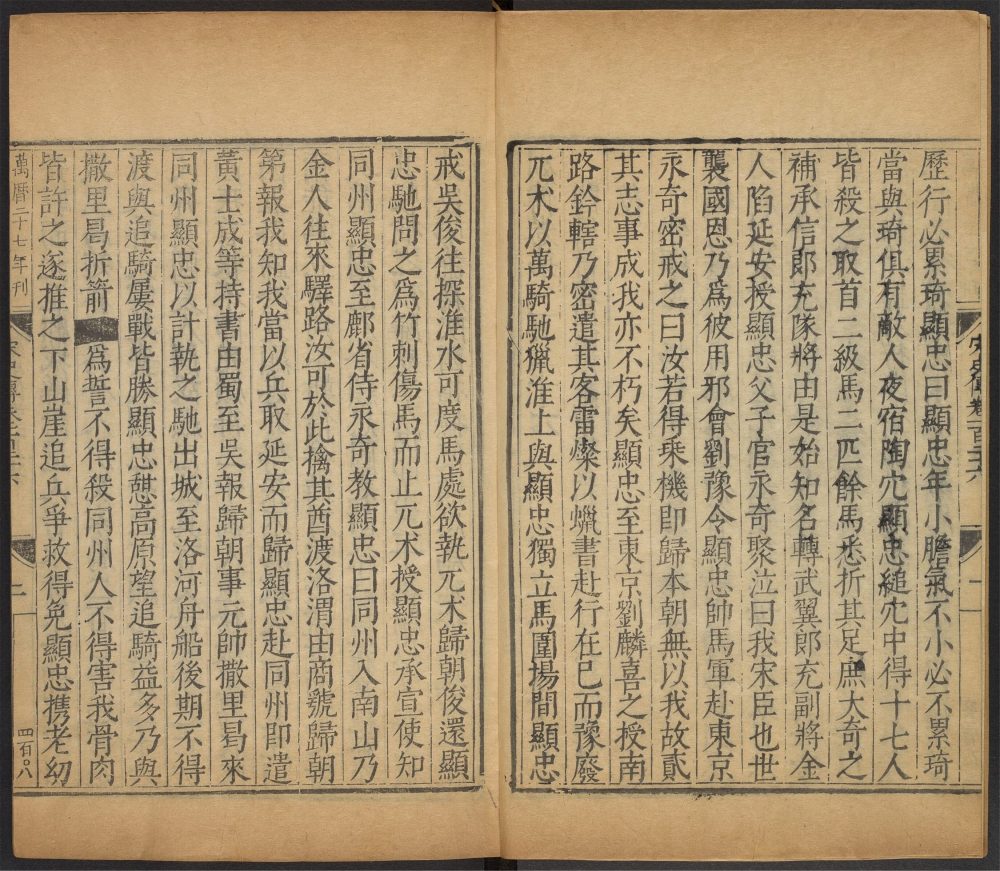 卷一百二十六
一
歷行必累琦顯忠曰顯忠年小膽氣不小必不累琦
當與琦俱有敵人夜宿陶穴顯忠縋穴中得十七人
皆殺之取首二級馬二匹餘馬悉折其足庶大奇之
補承信郎充隊將由是始知名轉武翼郎充副將金
人陷延安授顯忠父子官永奇聚泣曰我宋臣也世
襲國恩乃爲彼用邪會劉豫令顯忠帥馬軍赴東京
永奇密戒之曰汝若得乘機即歸本朝無以我故貳
其志事成我亦不朽矣顯忠至東京劉麟喜之授南
路鈐轄乃密遣其客雷燦以蠟書赴行在已而豫廢
兀朮以萬騎馳獵淮上與顯忠獨立馬圍場間顯忠
戒吳俊往探淮水可度馬處欲執兀朮歸朝俊還顯
忠馳問之爲竹刺傷馬而止兀朮授顯忠承宣使知
同州顯忠至鄜省侍永奇教顯忠曰同州入南山乃
金人往來驛路汝可於此擒其酋渡洛渭由商虢歸朝
第報我知我當以兵取延安而歸顯忠赴同州即遣
黃士成等持書由蜀至吳報歸朝事元帥撒里曷來
同州顯忠以計執之馳出城至洛河舟船後期不得
渡與追騎屢戰皆勝顯忠憇高原望追騎益多乃與
撒里曷折箭爲誓不得殺同州人不得害我骨肉
皆許之遂推之下山崖追兵爭救得免顯忠携老幼
萬曆二十七年刊
二
四百〇八